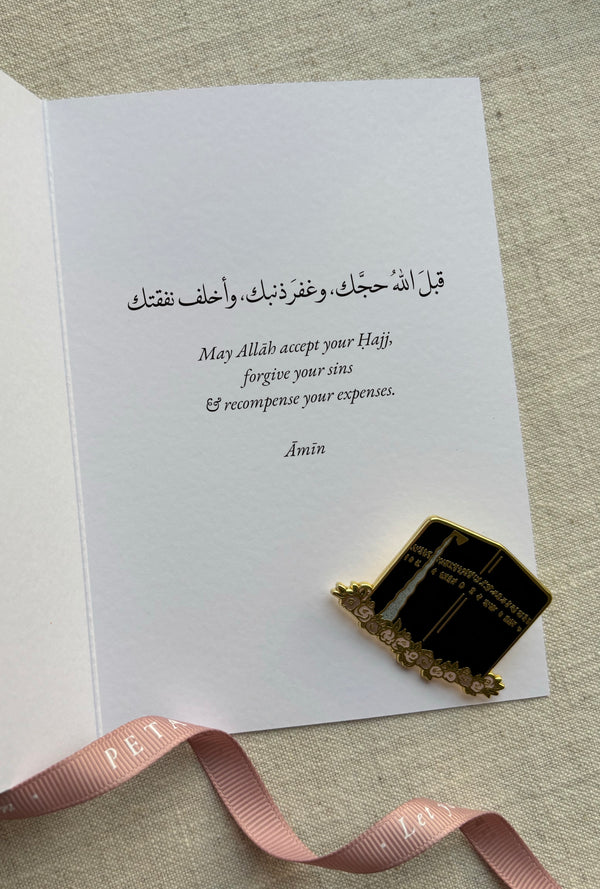 قبلَ اللهُ حجَّك، وغفرَ ذنبك، وأخلف نفقتك
May Allāh accept your Ḥajj,
forgive your sins
& recompense your expenses.
Āmīn
Let